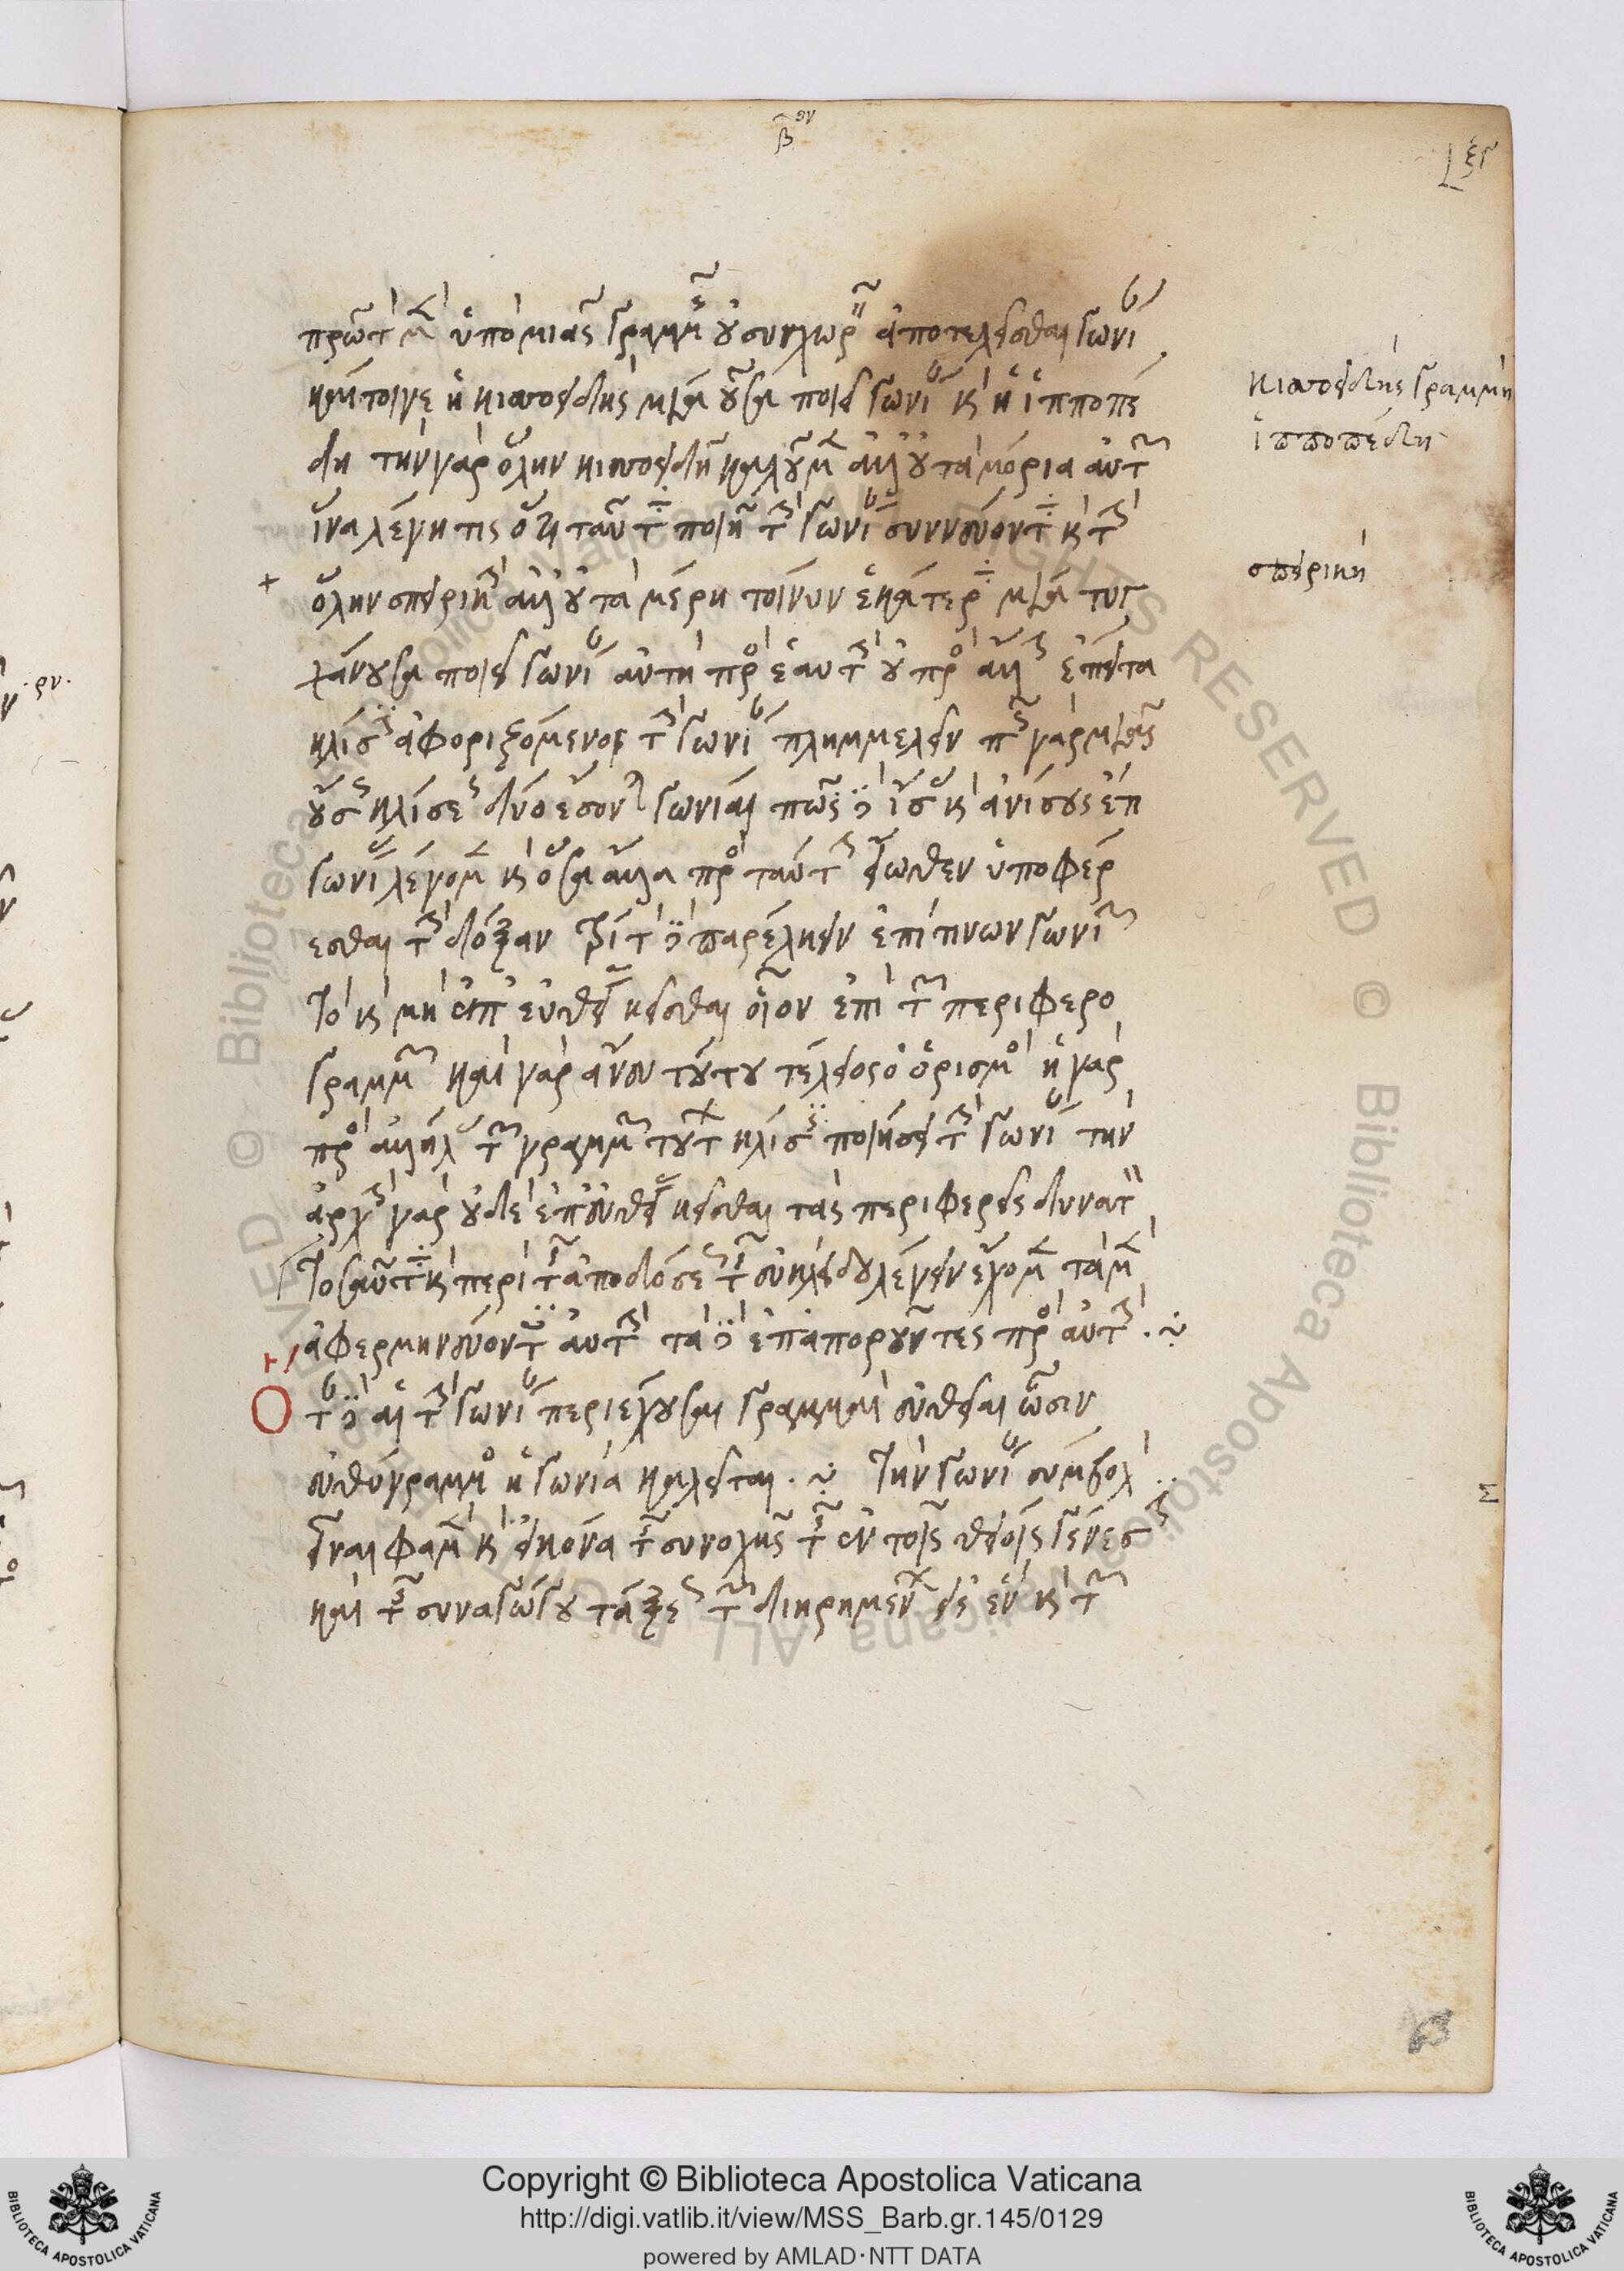 β ον
ξγ
πρῶτον μὲν ὑπὸ μιᾶς γραμμῆς οὐ συγχωρεῖ ἀποτελεῖσθαι γωνίαν
καίτοιγε ἡ κισσοειδὴς μία οὖσα ποιεῖ γωνίαν καὶ ἡ ἱπποπέ
δη τὴν γὰρ ὅλην κισσοειδῆ καλοῦμεν ἀλλ' οὐ τὰ μόρια αὐτῆς
ἵνα λέγῃ τις ὅτι ταῦτα ποιεῖ τὴν γωνίαν συννεύοντα καὶ τὴν
ὅλην σπειρικὴν ἀλλ' οὐ τὰ μέρη τοίνυν ἑκατέρα μία τυγ
χάνουσα ποιεῖ γωνίαν αὐτὴ πρὸς ἑαυτὴν οὐ πρὸς ἄλλην ἔπειτα
κλίσει ἀφοριζόμενος τὴν γωνίαν πλημμελεῖν πῶς γὰρ μιᾶς
οὔσης κλίσεως δύο ἔσονται γωνίαι πῶς δὲ ἴσας καὶ ἀνίσους ἔτι
γωνίας λέγομεν καὶ ὅσα ἄλλα πρὸς ταύτην εἴωθεν ὑποφέρ
εσθαι τὴν δόξαν τρίτον δὲ παρέλκειν ἐπί τινων γωνιῶν
τὸ καὶ μὴ ἐπ' εὐθείας κεῖσθαι οἷον ἐπὶ τῶν περιφερο
γράμμων καὶ γὰρ ἄνευ τούτου τέλειος ὁ ὁρισμὸς ἡ γὰρ
πρὸς ἀλλήλας τῶν γραμμῶν τούτων κλίσις ποιήσει τὴν γωνίαν τὴν
ἀρχὴν γὰρ οὐδὲ ἐπ' εὐθείας κεῖσθαι τὰς περιφερεῖς δυνατὸν
Τοσαῦτα καὶ περὶ τῆς ἀποδόσεως τῆς εὐκλείδου λέγειν ἔχομεν τὰ μὲν
ἀφερμηνεύοντες αὐτὴν τὰ δὲ ἐπαποροῦντες πρὸς αὐτήν.
Ὅταν δὲ αἱ τὴν γωνίαν περιέχουσαι γραμμαὶ εὐθεῖαι ὦσιν
εὐθύγραμμος ἡ γωνία καλεῖται. Τὴν γωνίαν σύμβολον
εἶναι φαμὲν καὶ εἰκόνα τῆς συνοχῆς τῆς ἐν τοῖς θείοις γένεσι
καὶ τῆς συναγωγοῦ τάξεως τῶν διῃρημένων εἰς ἓν καὶ τῶν
κισσοειδὴς γραμμὴ
ἱπποπέδη
σπειρικὴ
ρν.
Σ
63
Copyright © Biblioteca Apostolica Vaticana
http://digi.vatlib.it/view/MSS_Barb.gr.145/0129
powered by AMLAD·NTT DATA
BIBLIOTECA APOSTOLICA VATICANA
BIBLIOTECA APOSTOLICA VATICANA